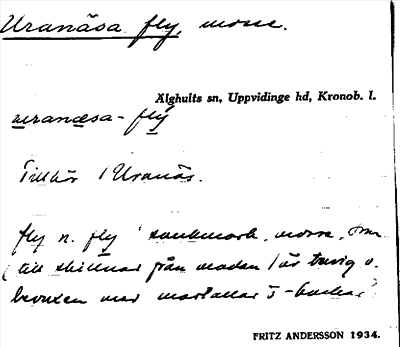 Uranäsa fly, mosse.
Älghults sn, Uppvidinge hd, Kronob. l.
uranæsa-fly
Tillhör Uranäs.
fly n. fly 'sankmark, mosse, som
(till skillnad från madan) är tuvig o.
bevuxen med martallar o-buskar'
FRITZ ANDERSSON 1934.